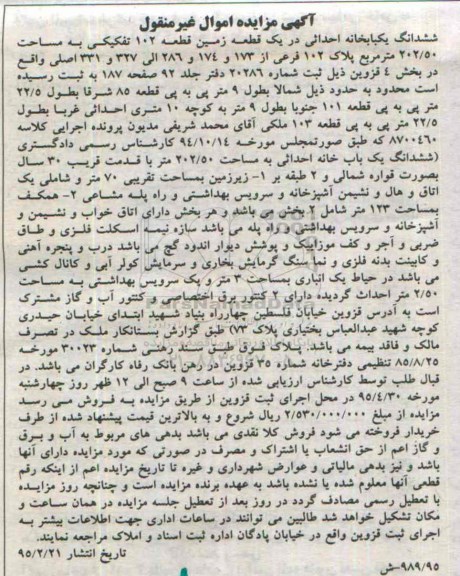 آگهی مزایده اموال غیرمنقول
ششدانگ یکبابخانه احداثی در یک قطعه زمین قطعه ۱۰۲ تفکیکی به مساحت
۲۰۲/۵۰ مترمربع پلاک ۱۰۲ فرعی از ۱۷۳ و ۱۷۴ و ۲۸۶ الی ۳۲۷ و ۳۳۱ اصلی واقع
در بخش ۴ قزوین ذیل ثبت شماره ۲۰۲۸۶ دفتر جلد ۹۲ صفحه ۱۸۷ به ثبت رسیده
است محدود به حدود ذیل شمالا بطول ۹ متر پی به پی قطعه ۸۵ شرقا بطول ۲۲/۵
متر پی به پی قطعه ۱۰۱ جنوبا بطول ۹ متر به کوچه ۱۰ متری احداثی غربا بطول
۲۲/۵ متر پی به پی قطعه ۱۰۳ ملکی آقای محمد شریفی مدیون پرونده اجرایی کلاسه
۸۷۰۰۴۶۰ که طبق صورتمجلس مورخه ۹۴/۱۰/۱۴ کارشناس رسمی دادگستری
(ششدانگ یک باب خانه احداثی به مساحت ۲۰۲/۵۰ متر با قدمت قریب ۳۰ سال
بصورت قواره شمالی و ۲ طبقه بر ۱- زیرزمین بمساحت تقریبی ۷۰ متر و شاملی یک
اتاق و هال و نشیمن آشپزخانه و سرویس بهداشتی و راه پله مشاعی ۲- همکف
بمساحت ۱۲۳ متر شامل ۲ بخش می باشد و هر بخش دارای اتاق خواب و نشیمن و
آشپزخانه و سرویس بهداشتی و راه پله می باشد سازه نیمه اسکلت فلزی و طاق
ضربی و آجر و کف موزاییک و پوشش دیوار اندود گچ می باشد درب و پنجره آهنی
و کابینت بدنه فلزی و نما سنگ گرمایش بخاری و سرمایش کولر آبی و کانال کشی
می باشد در حیاط یک انباری بمساحت ۳ متر و یک سرویس بهداشتی به مساحت
۲/۵۰ متر احداث گردیده دارای ۲ کنتور برق اختصاصی و کنتور آب و گاز مشترک
است به آدرس قزوین خیابان فلسطین چهارراه بنیاد شهید ابتدای خیابان حیدری
کوچه شهید عبدالعباس بختیاری پلاک ۷۳) طبق گزارش بستانکار ملک در تصرف
مالک و فاقد بیمه می باشد. پلاک فوق طی سند رهنی شماره ۳۰۰۲۳ مورخه
۸۵/۸/۲۵ تنظیمی دفترخانه شماره ۳۵ قزوین در رهن بانک رفاه کارگران می باشد. در
قبال طلب توسط کارشناس ارزیابی شده از ساعت ۹ صبح الی ۱۲ ظهر روز چهارشنبه
مورخه ۹۵/۴/۳۰ در محل اجرای ثبت قزوین از طریق مزایده به فروش می رسد
مزایده از مبلغ ۲/۵۳۰/۰۰۰/۰۰۰ ریال شروع و به بالاترین قیمت پیشنهاد شده از طرف
خریدار فروخته می شود فروش کلا نقدی می باشد بدهی های مربوط به آب و برق
و گاز اعم از حق انشعاب یا اشتراک و مصرف در صورتی که مورد مزایده دارای آنها
باشد و نیز بدهی مالیاتی و عوارض شهرداری و غیره تا تاریخ مزایده اعم از اینکه رقم
قطعی آنها معلوم شده یا نشده باشد به عهده برنده مزایده است و چنانچه روز مزایده
با تعطیل رسمی مصادف گردد در روز بعد از تعطیل جلسه مزایده در همان ساعت و
مکان تشکیل خواهد شد طالبین می توانند در ساعات اداری جهت اطلاعات بیشتر به
اجرای ثبت قزوین واقع در خیابان پادگان اداره ثبت اسناد و املاک مراجعه نمایند.
تاریخ انتشار ۹۵/۲/۲۱
۹۸۹/۹۵-ش